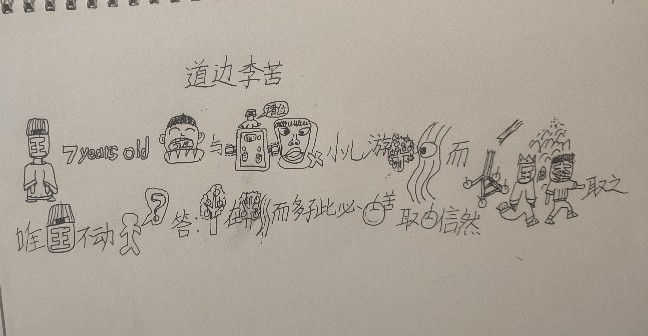 道边李苦
王 7 years old 与 小儿游 而 取之
唯王不动 ? 答: 在 而多子此必 苦 取 信然